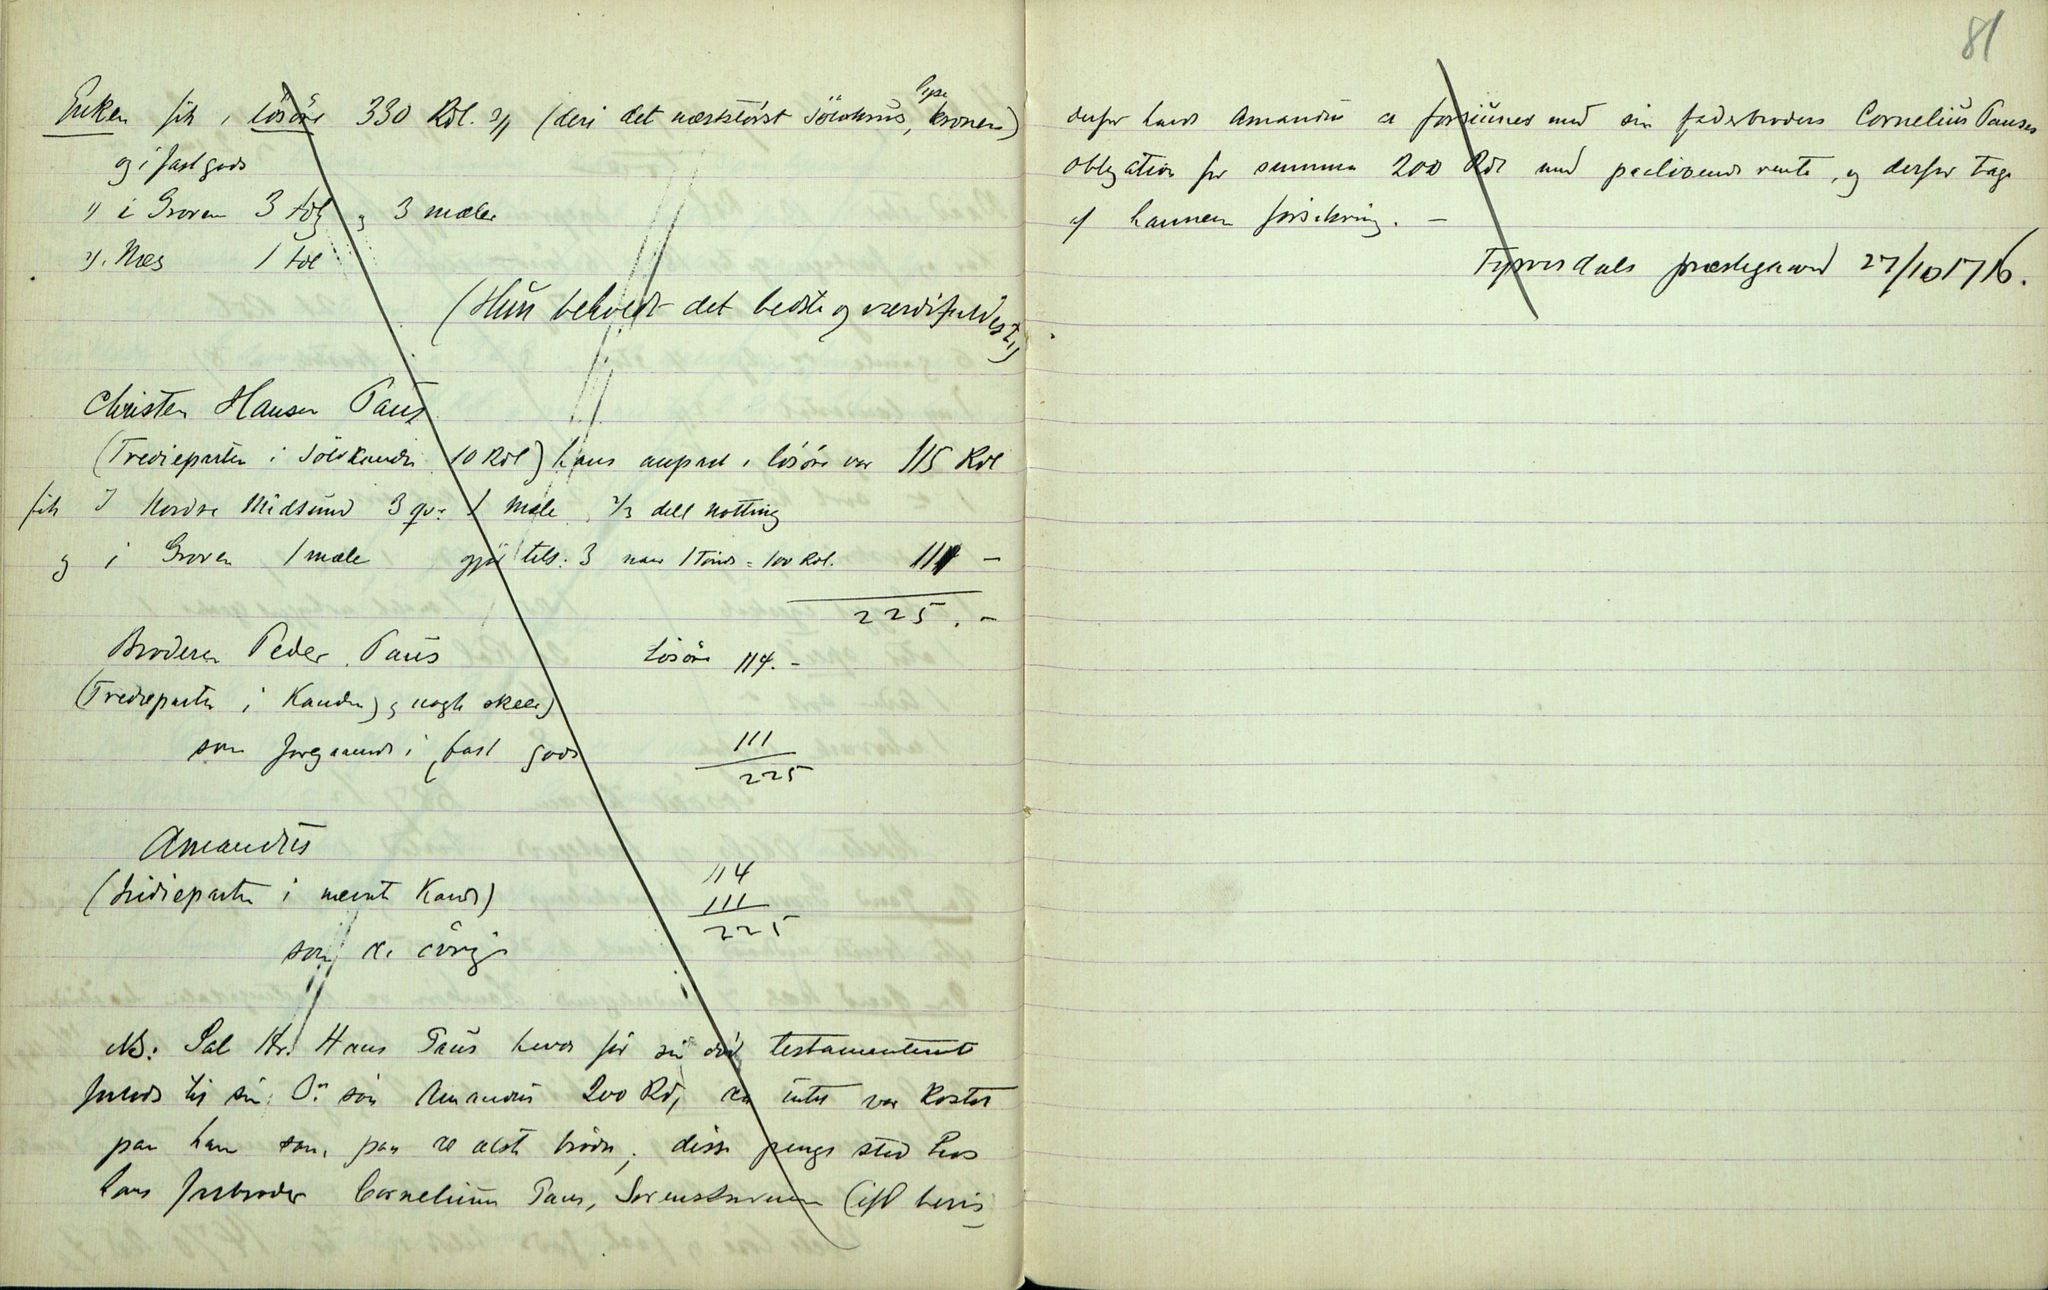 Enken fik i lösöre 330 Rdl. (deri det næststörst Sölvkrus, kronen)
og i fast gods
1) i Groven 3 tdl og 3 mæler
2). Næs 1 tdl
(Hun beholdt det bedste og værdifuldeste)
Christen Hansen Paus
(Tredieparten i Sölvkanden 10 Rdl) hans anpart i lösöre var 115 Rdl
fik I Nordre Midsund 3 qv: 1 Mæle, 2/3 deel notting
og i Groven 1 mæle gjör tils: 3 naar 1 Tönde = 100 Rdl. 111 –
225. –
Broderen Peder Paus Lösöre 114. –
(Tredieparten i Kanden) og nogle skeer)
som forgaaende i fast gods 111
225
Amandus
(tredieparten i nævnte Kande) 114
111
som de övrige 225
NB: Sal Hr. Hans Paus haver för sin död testamenteret
forud til sin sön Amandus 200 Rd, da intet var kostet
paa ham som paa de ælste brödre; disse penge stod hos
hans farbroder Cornelium Paus, Sorenskriveren (ifl bevis
81
derfor haves Amandus at forsiunes med sin faderbroders Cornelius Pauses
obligation for summen 200 Rdl med paalöbende rente, og derfor tage
af hannem forsikring. –
Hvideseids præstegaard 27/10 1716.